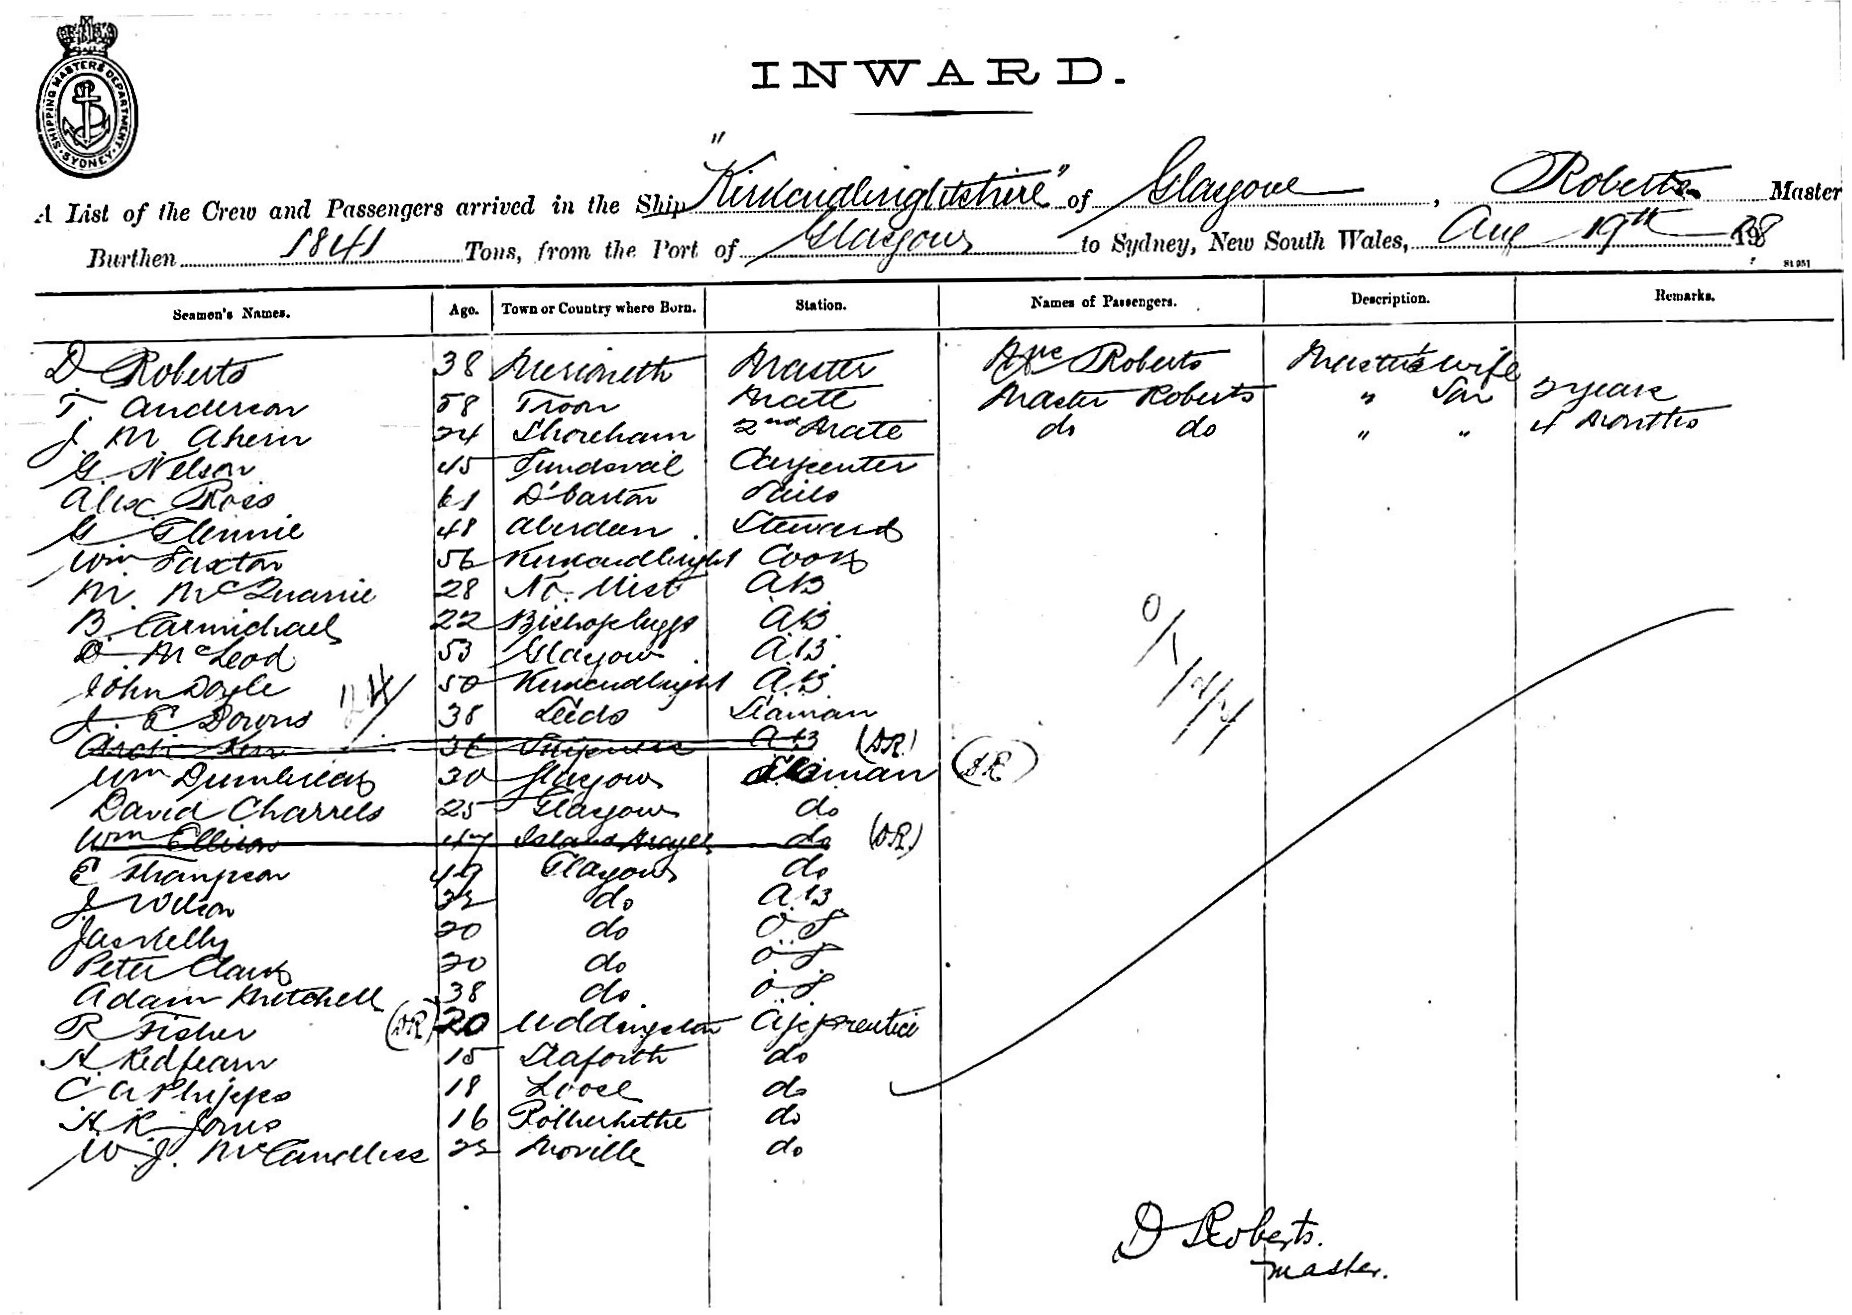 SHIPPING MASTERS DEPARTMENT · SYDNEY ·
INWARD.
A List of the Crew and Passengers arrived in the Ship "Kirkcudbrightshire" of Glasgow, Roberts Master
Burthen 1841 Tons, from the Port of Glasgow to Sydney, New South Wales, Aug 19th 198
Seamen's Names. Age. Town or Country where Born. Station. Names of Passengers. Description. Remarks.
D Roberts 38 Merioneth Master Mrs Roberts Master's wife
T. Anderson 58 Troon Mate Master Roberts " Son 2 years
J. M Ahern 24 Shoreham 2nd Mate do do " " 4 Months
G. Nelson 45 Sundsvail Carpenter
Alex Ross 61 D'barton Sails
G Glennie 48 Aberdeen Steward
Wm Saxton 56 Kirkcudbright Cook
M. McQuarrie 28 No. Uist AB
B. Carmichael 22 Bishopbriggs AB
D McLeod 53 Glasgow A.B.
John Doyle 50 Kirkcudbright A.B.
J. E Downs 38 Leeds Seaman
Arch Kerr 36 Skipness AB (DR)
Wm Dumbreck 30 Glasgow Seaman (DR)
David Charrels 25 Glasgow do
Wm Ellison 47 Island Argyll do (DR)
E Thompson 49 Glasgow do
J Wilson 32 do A.B
Jas Kelly 20 do O S
Peter Clark 20 do O S
Adam Mitchell 38 do O S
R Fisher (DR) 20 Uddingston Apprentice
H. Redfearn 15 Seaforth do
C A Phipps 18 Loose do
H R Jones 16 Rotherhithe do
W. J. McCandless 22 Moville do
D Roberts.
Master.